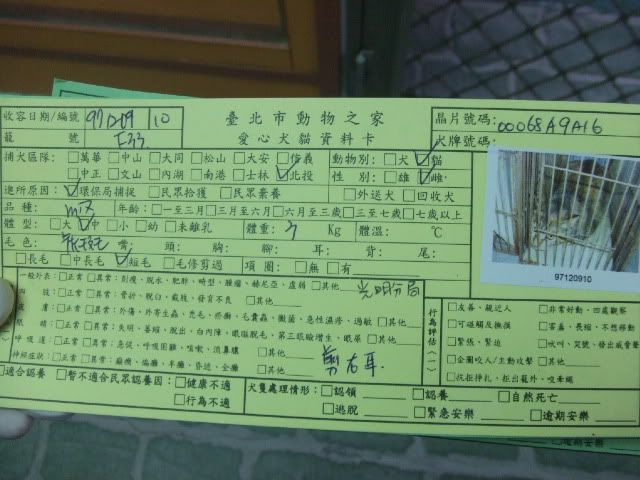 收容日期/編號 97 12 09 10
臺北市動物之家
晶片號碼: 00068A9A16
籠 號 E33
愛心犬貓資料卡
犬牌號碼:
捕犬區隊: □萬華 □中山 □大同 □松山 □大安 □信義
□中正 □文山 □內湖 □南港 □士林 ☑北投
動物別: □犬 ☑貓
性 別: □雄 ☑雌
進所原因: ☑環保局捕捉 □民眾拾獲 □民眾棄養
□外送犬 □回收犬
品種: MIX 年齡: □一至三月 □三月至六月 □六月至三歲 □三至七歲 □七歲以上
體型: □大 ☑中 □小 □幼 □未離乳 體重: 3 Kg 體溫: ℃
毛色: 嘴: 頭: 胸: 腳: 耳: 背: 尾:
□長毛 □中長毛 ☑短毛 □毛修剪過 項圈: □無 □有
97120910
一般外表: □正常 □異常: 削瘦、脫水、肥胖、畸型、腫瘤、赫尼亞、虛弱 □其他
光明分局
四 肢: □正常 □異常: 骨折、脫臼、截肢、發育不良 □其他
皮 膚: □正常 □異常: 外傷、外寄生蟲、禿毛、疥癬、毛囊蟲、黴菌、急性濕疹、過敏 □其他
眼 睛: □正常 □異常: 失明、萎縮、脫出、白內障、眼瞼脫毛、第三眼瞼增生、眼屎 □其他
呼吸道: □正常 □異常: 急促、呼吸困難、咳嗽、流鼻膿 □其他
神經症狀: □正常 □異常: 癲癇、偏癱、半癱、昏迷、全癱 □其他
剪右耳.
行為評估(一)
□友善、親近人 □非常好動、四處觀察
□可碰觸及撫摸 □害羞、長縮、不想移動
□緊張、緊迫 □吠叫、哭號、發出威脅聲
□企圖咬人/主動攻擊 □其他
□抗拒掙扎、拒出籠外、咬牽繩
□適合認養 □暫不適合民眾認養因: □健康不適
□行為不適
犬隻處理情形: □認領 □認養 □自然死亡
□逃脫 □緊急安樂 □逾期安樂
□逾期安樂